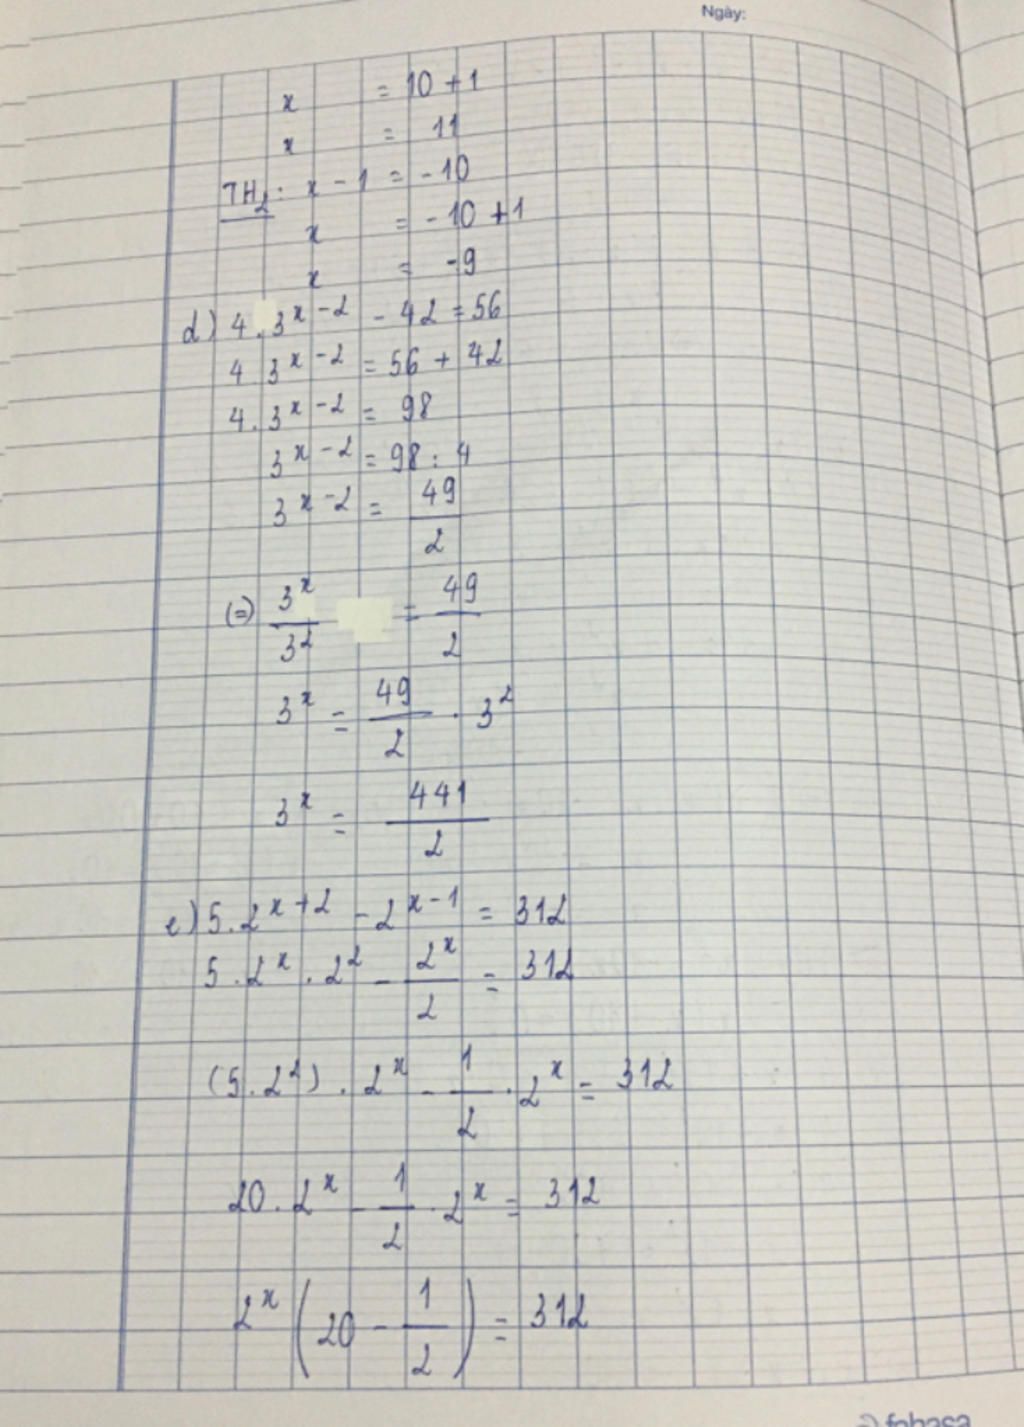 Ngày:
x = 10 + 1
x = 11
TH₂: x - 1 = -10
x = -10 + 1
x = -9
d) 4.3^{x-2} - 42 = 56
4 3^{x-2} = 56 + 42
4.3^{x-2} = 98
3^{x-2} = 98 : 4
3^{x-2} = \frac{49}{2}
(=) \frac{3^x}{3^2} = \frac{49}{2}
3^x = \frac{49}{2} . 3^2
3^x = \frac{441}{2}
e) 5.2^{x+2} - 2^{x-1} = 312
5.2^x . 2^2 - \frac{2^x}{2} = 312
(5.2^2) . 2^x - \frac{1}{2} . 2^x = 312
20.2^x - \frac{1}{2} . 2^x = 312
2^x (20 - \frac{1}{2}) = 312
fahasa